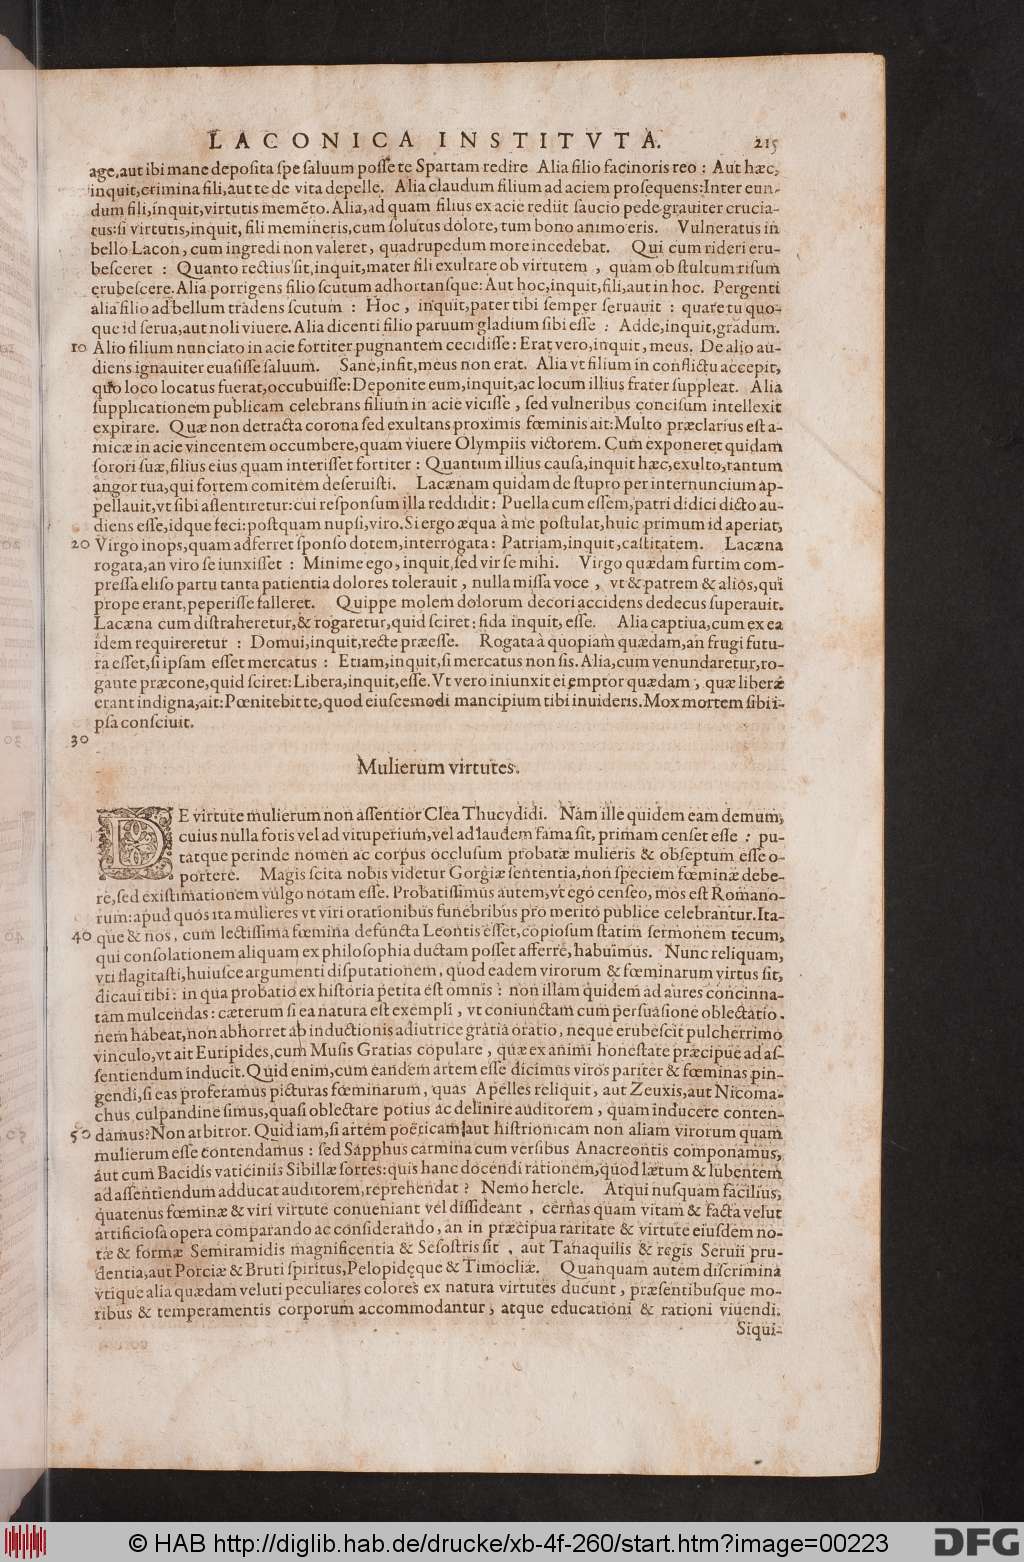 LACONICA INSTITVTA. 215
age, aut ibi mane deposita spe saluum posse te Spartam redire Alia filio facinoris reo : Aut hæc,
inquit, crimina fili, aut te de vita depelle. Alia claudum filium ad aciem prosequens: Inter eun-
dum fili, inquit, virtutis memẽto. Alia, ad quam filius ex acie rediit saucio pede grauiter crucia-
tus: si virtutis, inquit, fili memineris, cum solutus dolore, tum bono animo eris. Vulneratus in
bello Lacon, cum ingredi non valeret, quadrupedum more incedebat. Qui cum rideri eru-
besceret : Quanto rectius sit, inquit, mater fili exultare ob virtutem , quam ob stultum risum
erubescere. Alia porrigens filio scutum adhortansque: Aut hoc, inquit, fili, aut in hoc. Pergenti
alia filio ad bellum tradens scutum : Hoc , inquit, pater tibi semper seruauit : quare tu quo-
que id serua, aut noli viuere. Alia dicenti filio paruum gladium sibi esse : Adde, inquit, gradum.
10 Alio filium nunciato in acie fortiter pugnantem cecidisse: Erat vero, inquit, meus. De alio au-
diens ignauiter euasisse saluum. Sane, infit, meus non erat. Alia vt filium in conflictu accepit,
quo loco locatus fuerat, occubuisse: Deponite eum, inquit, ac locum illius frater suppleat. Alia
supplicationem publicam celebrans filium in acie vicisse , sed vulneribus concisum intellexit
expirare. Quæ non detracta corona sed exultans proximis fœminis ait: Multo præclarius est a-
micæ in acie vincentem occumbere, quam viuere Olympiis victorem. Cum exponeret quidam
sorori suæ, filius eius quam interisset fortiter : Quantum illius causa, inquit hæc, exulto, tantum
angor tua, qui fortem comitem deseruisti. Lacænam quidam de stupro per internuncium ap-
pellauit, vt sibi assentiretur: cui responsum illa reddidit: Puella cum essem, patri didici dicto au-
diens esse, idque feci: postquam nupsi, viro. Si ergo æqua à me postulat, huic primum id aperiat,
20 Virgo inops, quam adferret sponso dotem, interrogata: Patriam, inquit, castitatem. Lacæna
rogata, an viro se iunxisset : Minime ego, inquit, sed vir se mihi. Virgo quædam furtim com-
pressa eliso partu tanta patientia dolores tolerauit , nulla missa voce , vt & patrem & alios, qui
prope erant, peperisse falleret. Quippe molem dolorum decori accidens dedecus superauit.
Lacæna cum distraheretur, & rogaretur, quid sciret: fida inquit, esse. Alia captiua, cum ex ea
idem requireretur : Domui, inquit, recte præesse. Rogata à quopiam quædam, an frugi futu-
ra esset, si ipsam esset mercatus : Etiam, inquit, si mercatus non sis. Alia, cum venundaretur, ro-
gante præcone, quid sciret: Libera, inquit, esse. Vt vero iniunxit ei emptor quædam , quæ liberæ
erant indigna, ait: Pœnitebit te, quod eiuscemodi mancipium tibi inuideris. Mox mortem sibi i-
psa consciuit.
30
Mulierum virtutes.
DE virtute mulierum non assentior Clea Thucydidi. Nam ille quidem eam demum,
cuius nulla foris vel ad vituperium, vel ad laudem fama sit, primam censet esse : pu-
tatque perinde nomen ac corpus occlusum probatæ mulieris & obseptum esse o-
portere. Magis scita nobis videtur Gorgiæ sententia, non speciem fœminæ debe-
re, sed existimationem vulgo notam esse. Probatissimus autem, vt ego censeo, mos est Romano-
rum: apud quos ita mulieres vt viri orationibus funebribus pro merito publice celebrantur. Ita-
40 que & nos , cum lectissima fœmina defuncta Leontis esset, copiosum statim sermonem tecum,
qui consolationem aliquam ex philosophia ductam posset afferre, habuimus. Nunc reliquam,
vti flagitasti, huiusce argumenti disputationem, quod eadem virorum & fœminarum virtus sit,
dicaui tibi: in qua probatio ex historia petita est omnis : non illam quidem ad aures concinna-
tam mulcendas: cæterum si ea natura est exempli , vt coniunctam cum persuasione oblectatio.
nem habeat, non abhorret ab inductionis adiutrice gratia oratio, neque erubescit pulcherrimo
vinculo, vt ait Euripides, cum Musis Gratias copulare , quæ ex animi honestate præcipue ad as-
sentiendum inducit. Quid enim, cum eandem artem esse dicimus viros pariter & fœminas pin-
gendi, si eas proferamus picturas fœminarum, quas Apelles reliquit, aut Zeuxis, aut Nicoma-
chus culpandine simus, quasi oblectare potius ac delinire auditorem , quam inducere conten-
50 damus? Non arbitror. Quid iam, si artem poëticam aut histrionicam non aliam virorum quam
mulierum esse contendamus : sed Sapphus carmina cum versibus Anacreontis componamus,
aut cum Bacidis vaticiniis Sibillæ sortes: quis hanc docendi rationem, quod lætum & lubentem
ad assentiendum adducat auditorem, reprehendat ? Nemo hercle. Atqui nusquam facilius,
quatenus fœminæ & viri virtute conueniant vel dissideant , cernas quam vitam & facta velut
artificiosa opera comparando ac considerando, an in præcipua raritate & virtute eiusdem no-
tæ & formæ Semiramidis magnificentia & Sesostris sit , aut Tanaquilis & regis Seruii pru-
dentia, aut Porciæ & Bruti spiritus, Pelopidęque & Timocliæ. Quanquam autem discrimina
vtique alia quædam veluti peculiares colores ex natura virtutes ducunt , præsentibusque mo-
ribus & temperamentis corporum accommodantur , atque educationi & rationi viuendi.
Siqui-
© HAB http://diglib.hab.de/drucke/xb-4f-260/start.htm?image=00223
DFG